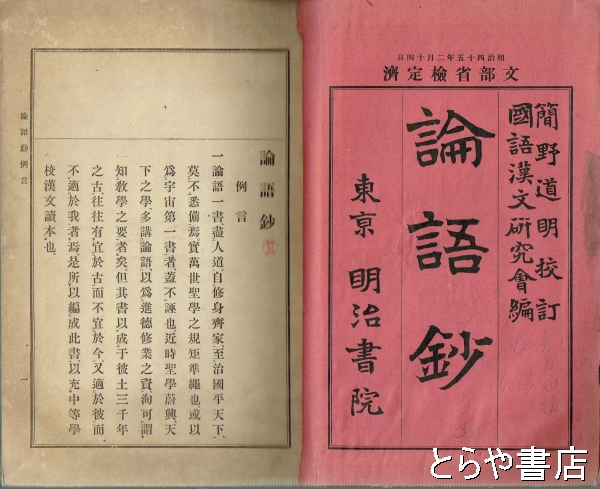 明治四十五年二月十四日
文部省檢定濟
簡野道明校訂
國語漢文研究會編
論語鈔
東京 明治書院
論語鈔
例言
一論語一書、盡人道、自修身齊家、至治國平天下、
莫不悉備焉、實萬世聖學之規矩準繩也、或以
爲宇宙第一書者、蓋不誣也、近時聖學蔚興、天
下之學、多講論語、以爲進德修業之資、洵可謂
知教學之要者矣、但其書以成于彼土三千年
之古、往往有宜於古而不宜於今、又適於彼而
不適於我者焉、是所以編成此書、以充中等學
校漢文讀本也、
論語鈔例言
一
とらや書店